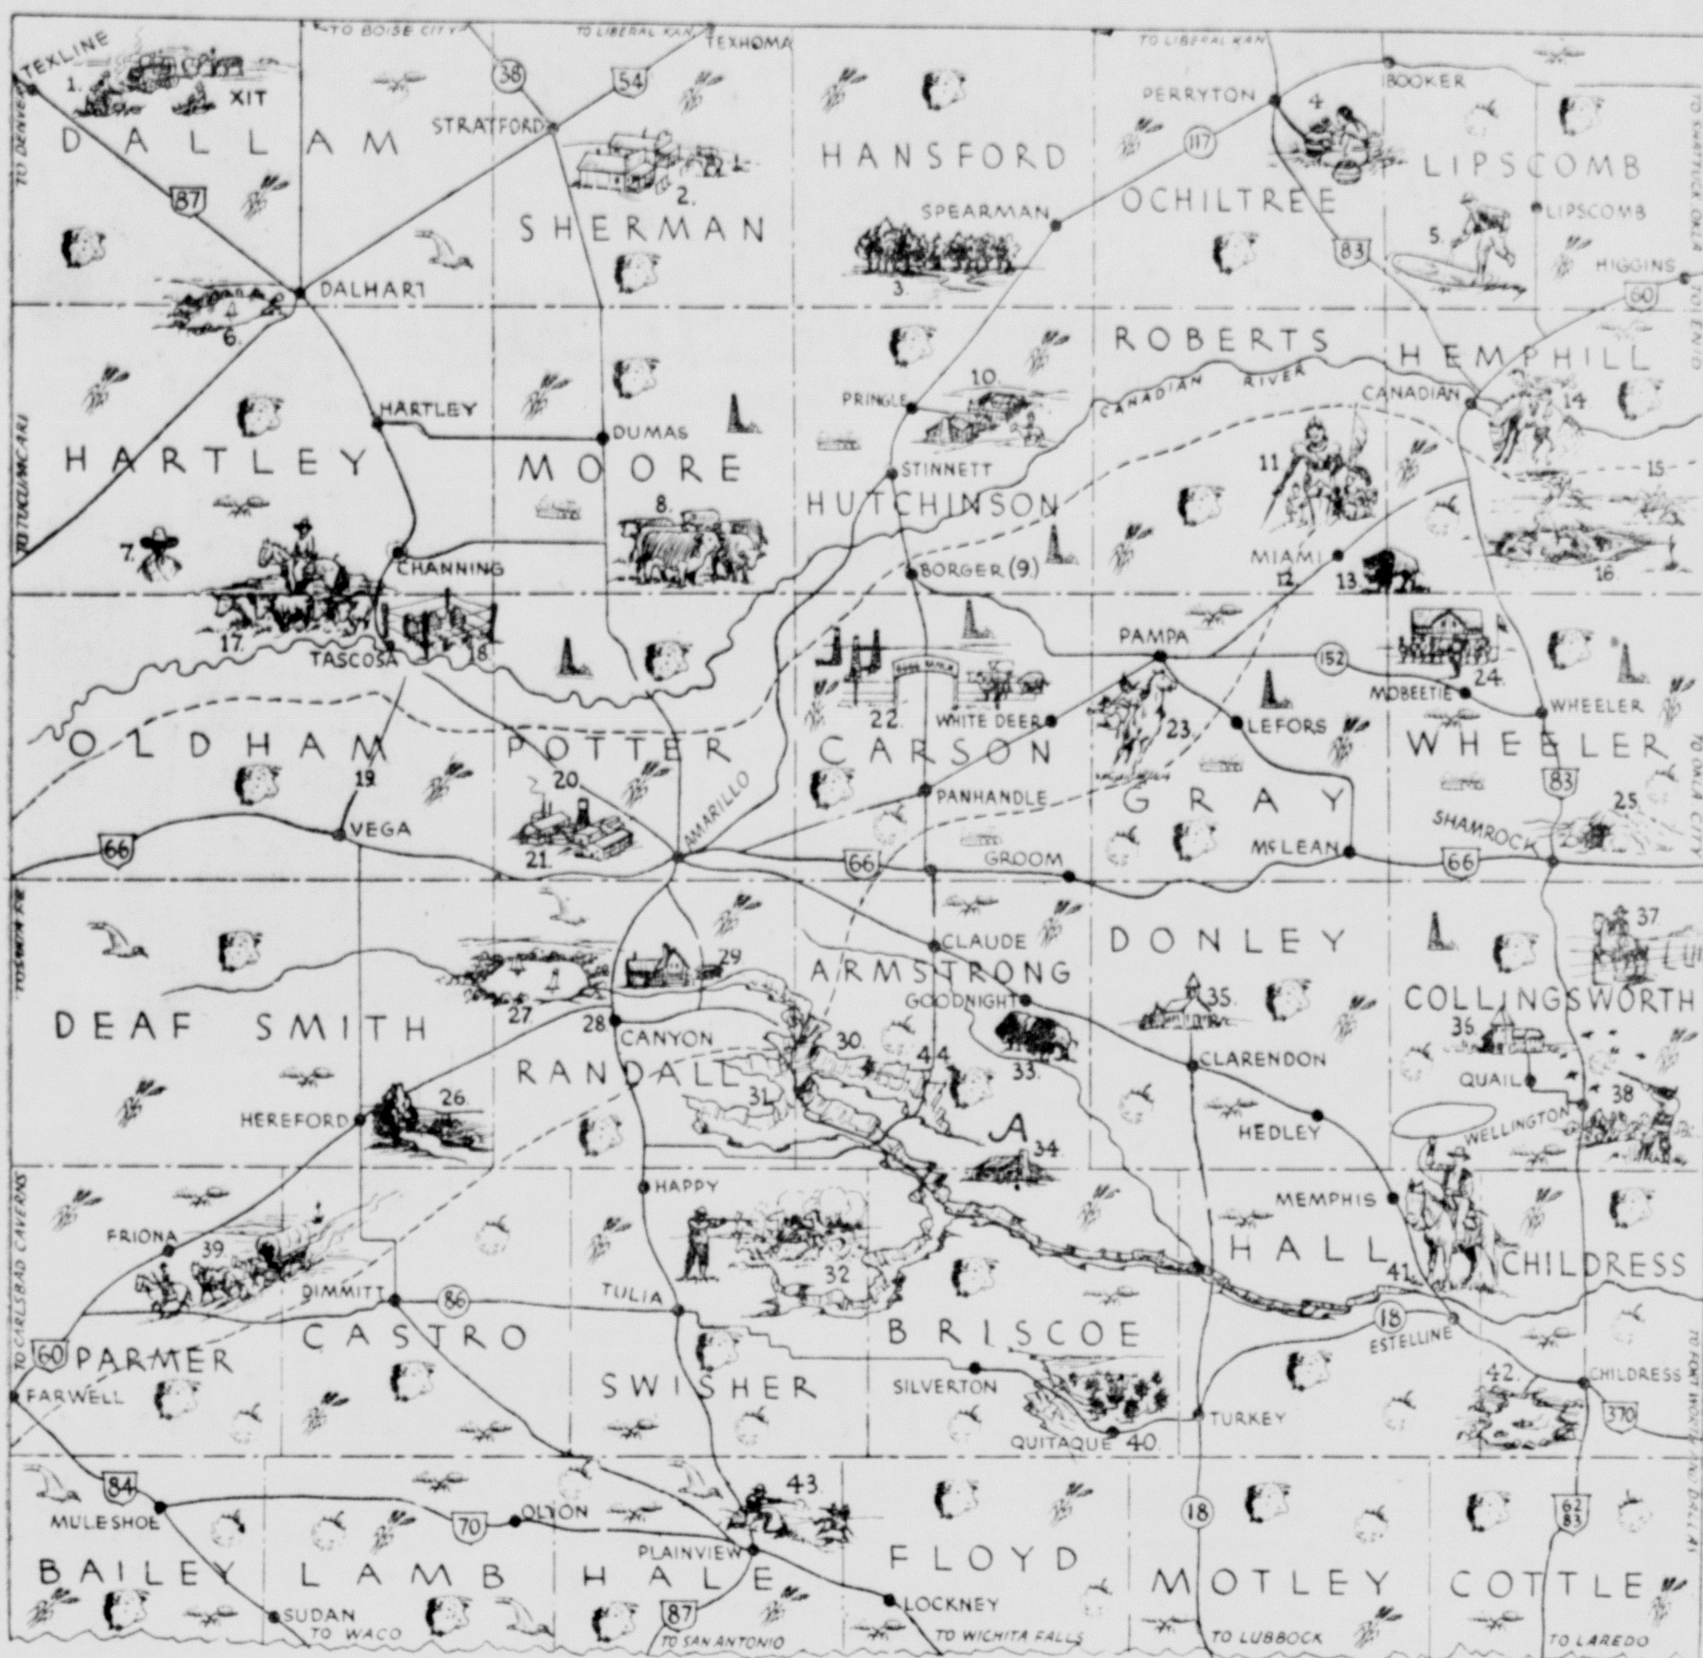 TO BOISE CITY
TO LIBERAL KAN.
TEXHOMA
TO LIBERAL KAN
TEXLINE
1.
XIT
38
54
PERRYTON
4
BOOKER
TO DENVER
DALLAM
STRATFORD
HANSFORD
117
LIPSCOMB
87
2.
SHERMAN
SPEARMAN
OCHILTREE
LIPSCOMB
5.
83
HIGGINS
3.
60
DALHART
6.
ROBERTS
HEMPHILL
CANADIAN RIVER
CANADIAN
14
10.
PRINGLE
HARTLEY
DUMAS
TO TUCUMCARI
HARTLEY
MOORE
STINNETT
11
15
HUTCHINSON
8.
7.
CHANNING
BORGER (9.)
MIAMI
12.
13.
16.
17.
TASCOSA
18.
PAMPA
152
MOBEETIE
24.
WHEELER
22.
WHITE DEER
23.
LEFORS
OLDHAM
POTTER
CARSON
WHEELER
19.
20.
AMARILLO
PANHANDLE
GRAY
83
TO OKLA CITY
VEGA
66
21.
66
GROOM
McLEAN
66
SHAMROCK
25.
CLAUDE
DONLEY
37
29
ARMSTRONG
GOODNIGHT
35.
COLLINGSWORTH
27
28
DEAF SMITH
CANYON
30.
44
33.
CLARENDON
36
RANDALL
31.
QUAIL
38
HEREFORD
26.
HEDLEY
WELLINGTON
34
TO CARLSBAD CAVERNS
HAPPY
MEMPHIS
FRIONA
39
32
HALL
41.
CHILDRESS
DIMMITT
86
TULIA
18
ESTELLINE
60
PARMER
CASTRO
BRISCOE
FARWELL
SWISHER
SILVERTON
42.
CHILDRESS
370
TURKEY
QUITAQUE 40.
84
MULESHOE
70
OLTON
43.
18
62
83
PLAINVIEW
BAILEY
LAMB
HALE
FLOYD
MOTLEY
COTTLE
SUDAN
TO WACO
87
TO SAN ANTONIO
LOCKNEY
TO WICHITA FALLS
TO LUBBOCK
TO LAREDO